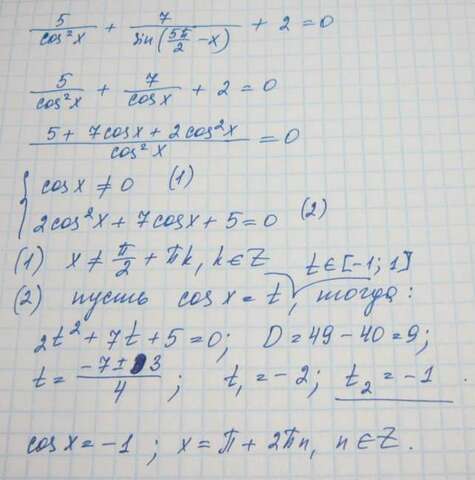 5/cos²x + 7/sin(5π/2 − x) + 2 = 0
5/cos²x + 7/cosx + 2 = 0
(5 + 7cosx + 2cos²x)/cos²x = 0
{ cosx ≠ 0 (1)
2cos²x + 7cosx + 5 = 0 (2)
(1) x ≠ π/2 + πk, k ∈ Z t ∈ [-1; 1]
(2) пусть cosx = t, тогда:
2t² + 7t + 5 = 0; D = 49 − 40 = 9;
t = (−7 ± 3)/4; t₁ = −2; t₂ = −1.
cosx = −1; x = π + 2πn, n ∈ Z.